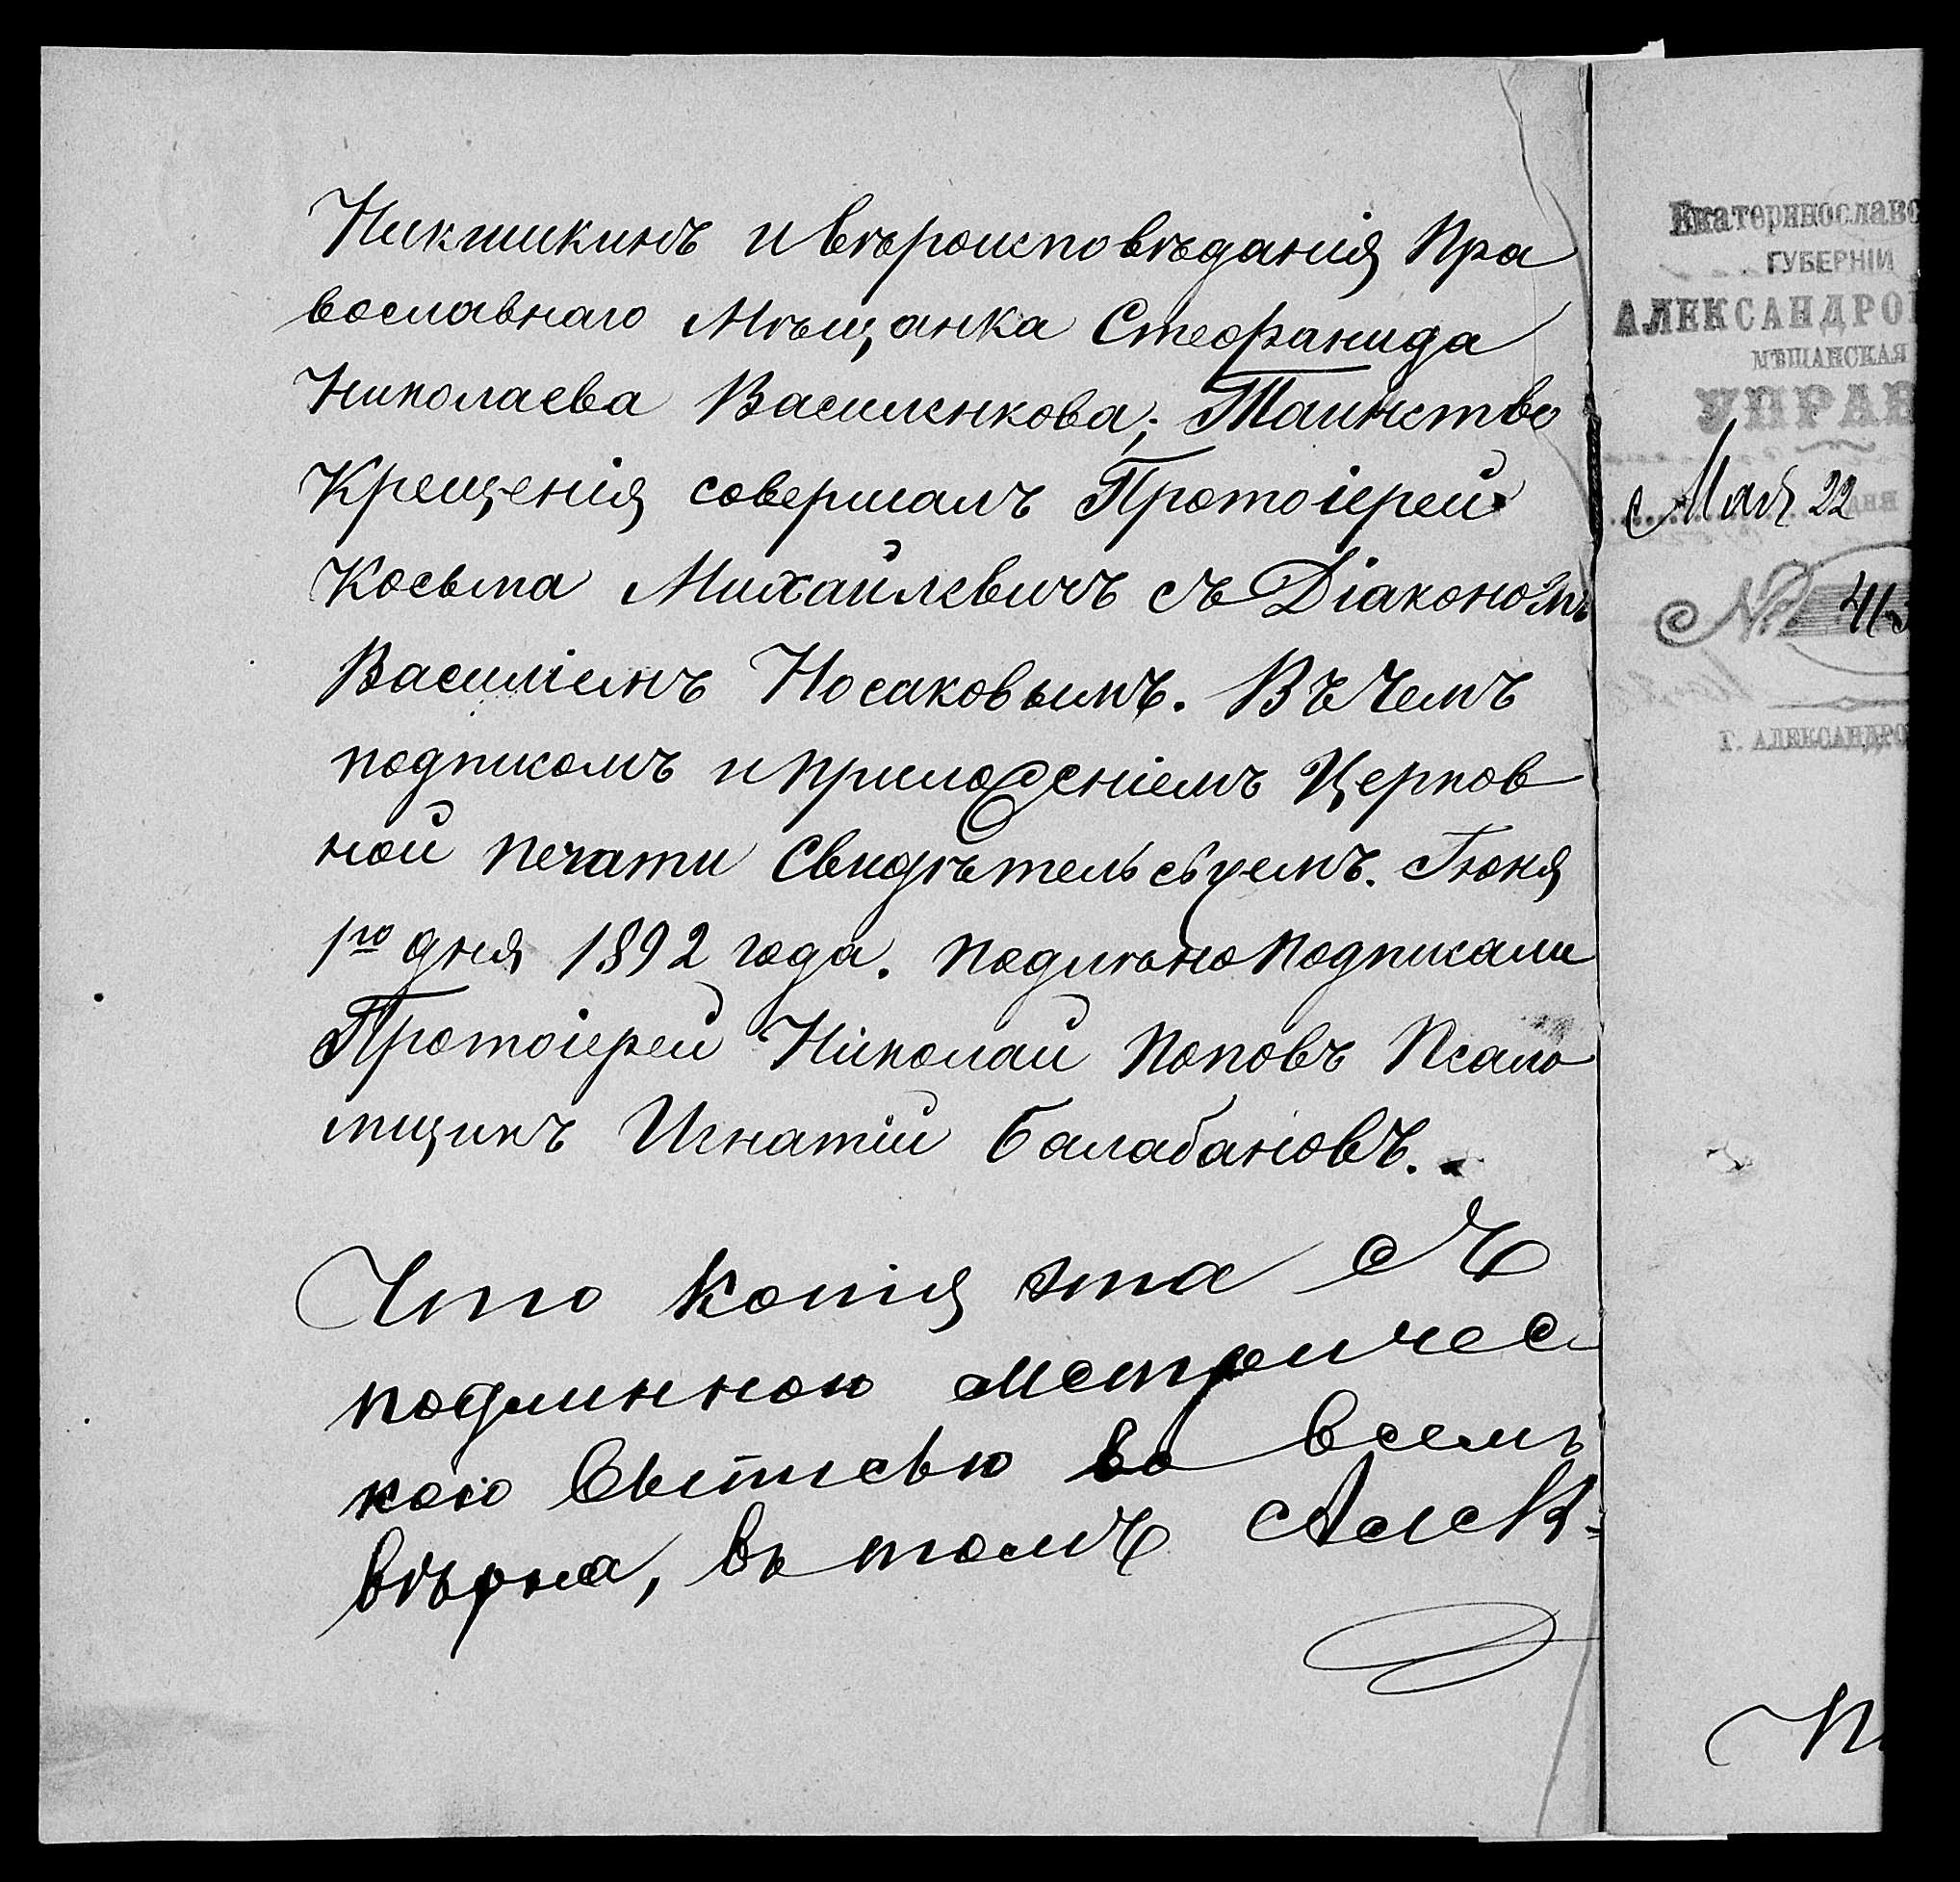 Никшикинъ и вѣроисповѣданія Пра
вославнаго Мѣщанка Стефанида
Николаева Василенкова; Таинство
Крещенія совершалъ Протоіерей
Косьма Михайлевичъ съ Діакономъ
Василіемъ Носаковымъ. Въ чемъ
подписомъ и приложеніемъ Церков
ной печати Свидѣтельсвуемъ. Іюня
1го дня 1892 года. Подлѣно Подписали
Протоіерей Николай Поповъ Псало
мщикъ Игнатій Балабановъ.
Что копія эта съ
подлинною метричес
кою выписью во всемъ
вѣрна, въ томъ Алек-
Екатеринославс
ГУБЕРНІИ
АЛЕКСАНДРО
МѢЩАНСКАЯ
УПРАВ
Мая 22 дня
№ 413
Г. АЛЕКСАНДРО